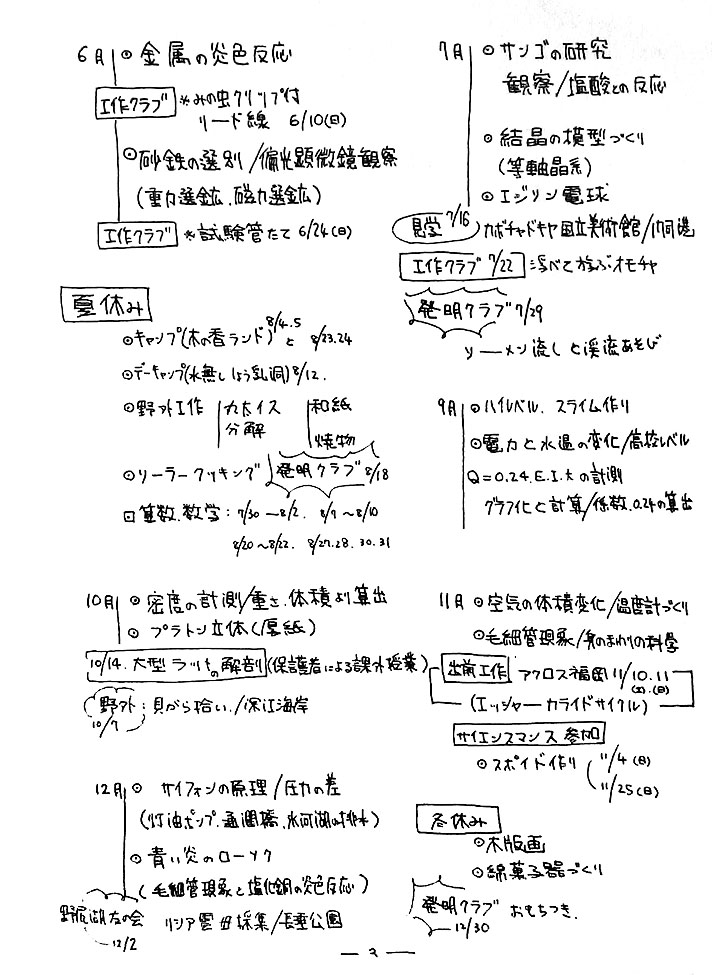 6月 ⊙ 金属の炎色反応
工作クラブ ※みの虫クリップ付
リード線 6/10(日)
⊙砂鉄の選別/偏光顕微鏡観察
(重力選鉱、磁力選鉱)
工作クラブ ※試験管たて 6/24(日)
7月 ⊙ サンゴの研究
観察/塩酸との反応
⊙ 結晶の模型づくり
(等軸晶系)
⊙ エジソン電球
見学 7/16 カボチャドキヤ国立美術館/
工作クラブ 7/22 浮べて遊ぶオモチャ
発明クラブ 7/29
ソーメン流しと渓流あそび
夏休み
⊙キャンプ(木の香ランド) 8/4.5 と 8/23.24
⊙デーキャンプ(水無しょう乳洞) 8/12.
⊙野外工作 分解 和紙
焼物
⊙ソーラークッキング 発明クラブ 8/18
□算数.数学: 7/30〜8/2. 8/7〜8/10
8/20〜8/22. 8/27.28.30.31
9月 ⊙ハイレベル.スライム作り
⊙電力と水温の変化/高校レベル
Q=0.24.E.I.tの計測
グラフ化と計算/係数.0.24の算出
10月 ⊙ 密度の計測/重さ.体積より算出
⊙ プラトン立体(厚紙)
10/14.大型ラットの解剖(保護者による課外授業)
野外 10/7 : 貝がら拾い./深江海岸
11月 ⊙空気の体積変化/温度計づくり
⊙毛細管現象/身のまわりの科学
出前工作 アクロス福岡 11/10.11
(土).(日)
(エッシャー カライドサイクル)
サイエンスマンス 参加
⊙スポイド作り 11/4(日)
11/25(日)
12月 ⊙ サイフォンの原理/圧力の差
(灯油ポンプ.通潤橋.氷河湖の排水)
⊙ 青い炎のローソク
(毛細管現象と塩化銅の炎色反応)
野尻湖友の会 リシア雲母採集/長垂公園
—12/2
冬休み
⊙木版画
⊙綿菓子器づくり
発明クラブ おもちつき.
—12/30
— 3 —